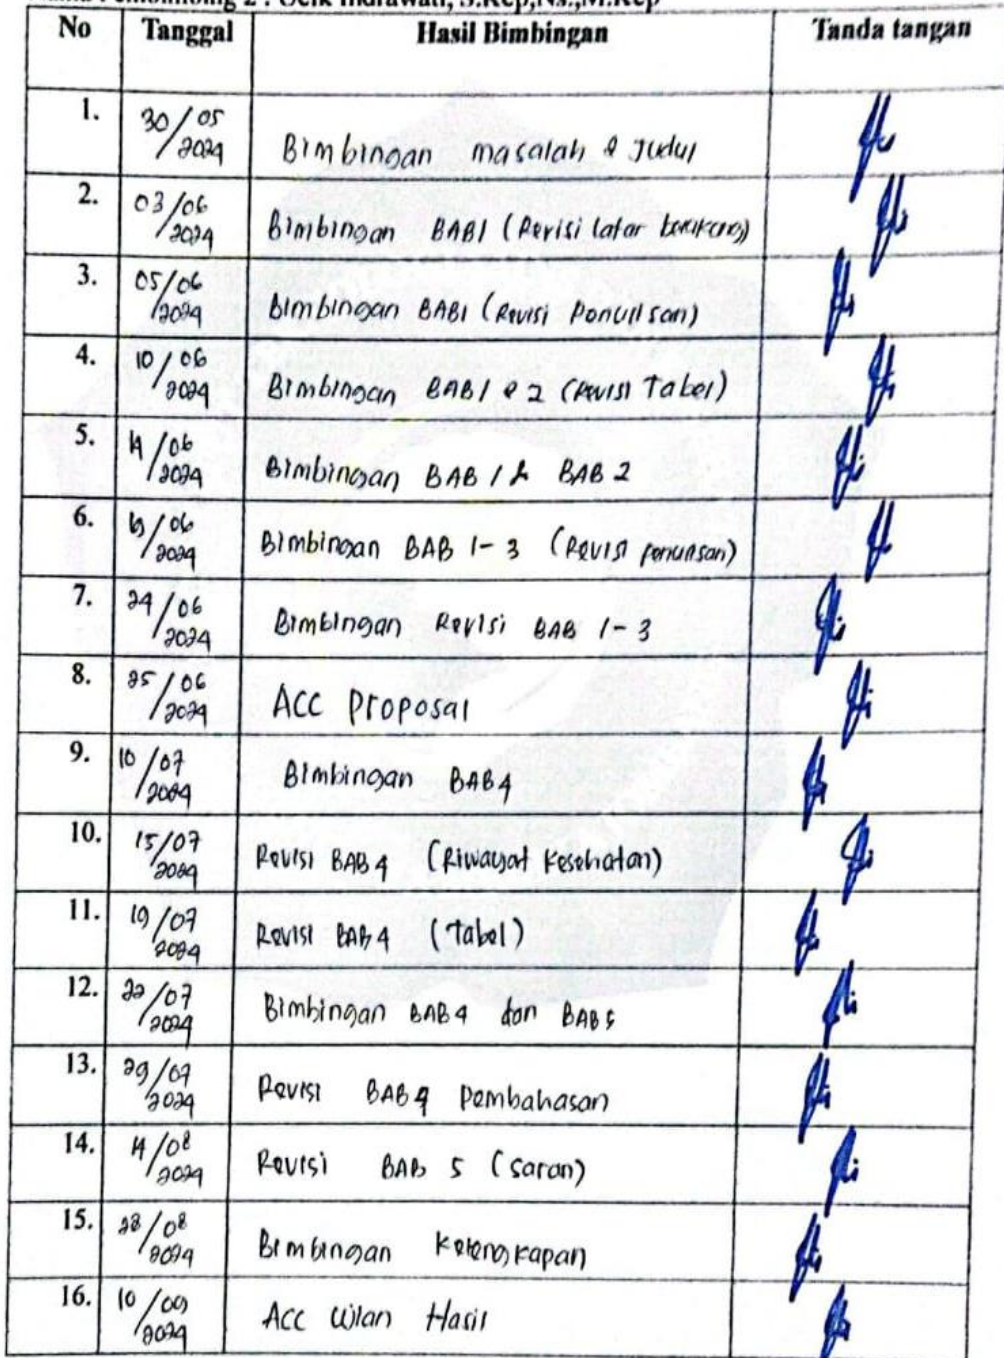 Nama Pembimbing 2 : Ucik Indrawati, S.Kep,Ns.,M.Kep
No Tanggal Hasil Bimbingan Tanda tangan
1. 30/05/2024 Bimbingan masalah & Judul
2. 03/06/2024 Bimbingan BAB1 (Revisi latar belakang)
3. 05/06/2024 Bimbingan BAB1 (Revisi Penulisan)
4. 10/06/2024 Bimbingan BAB1 & 2 (Revisi Tabel)
5. 14/06/2024 Bimbingan BAB 1 & BAB 2
6. /06/2024 Bimbingan BAB 1-3 (Revisi penulisan)
7. 24/06/2024 Bimbingan Revisi BAB 1-3
8. 25/06/2024 ACC Proposal
9. 10/07/2024 Bimbingan BAB4
10. 15/07/2024 Revisi BAB 4 (Riwayat Kesehatan)
11. 19/07/2024 Revisi BAB 4 (Tabel)
12. 22/07/2024 Bimbingan BAB 4 dan BAB 5
13. 29/07/2024 Revisi BAB 4 Pembahasan
14. 14/08/2024 Revisi BAB 5 (saran)
15. 28/08/2024 Bimbingan Kelengkapan
16. 10/09/2024 Acc Ujian Hasil